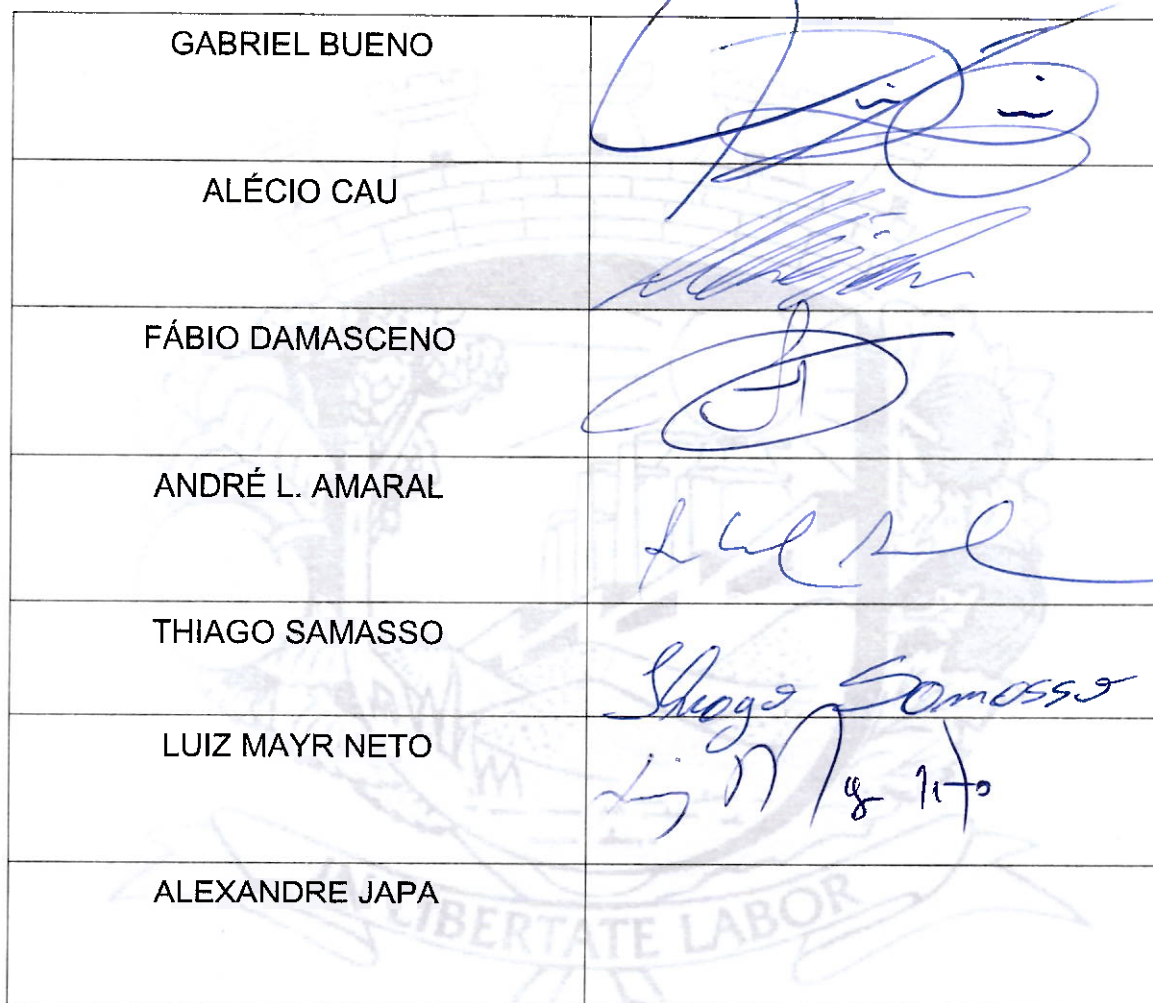 GABRIEL BUENO
ALÉCIO CAU
FÁBIO DAMASCENO
ANDRÉ L. AMARAL
THIAGO SAMASSO
Thiago Samasso
LUIZ MAYR NETO
Luiz Mayr Neto
ALEXANDRE JAPA
LIBERTATE LABOR